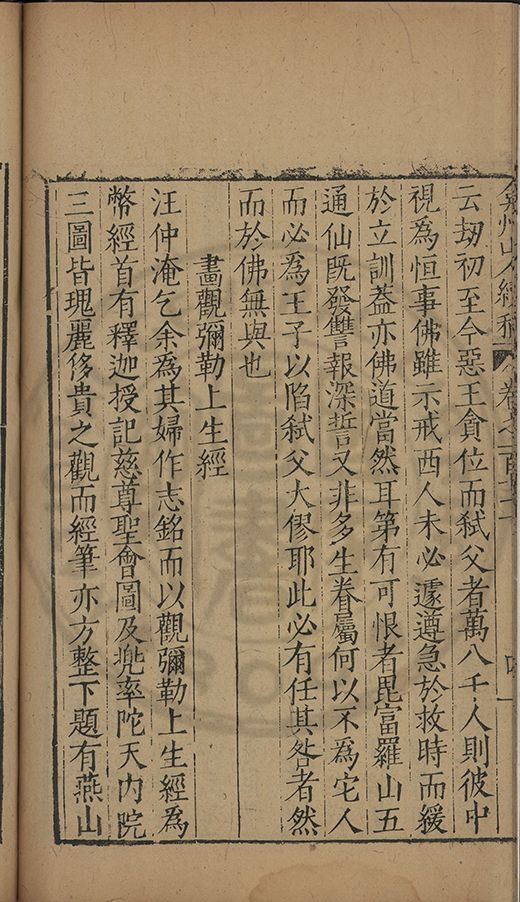 云劫初至今惡王貪位而弑父者萬八千人則彼中
視爲恒事佛雖示戒西人未必遽遵急於救時而緩
於立訓葢亦佛道當然耳第有可恨者毘富羅山五
通仙旣發讐報深誓又非多生眷屬何以不爲宅人
而必爲王子以陷弑父大僇耶此必有任其咎者然
而於佛無與也
畫觀彌勒上生經
汪仲淹乞余爲其婦作志銘而以觀彌勒上生經爲
幣經首有釋迦授記慈尊聖會圖及兜率陀天内院
三圖皆瑰麗侈貴之觀而經筆亦方整下題有燕山